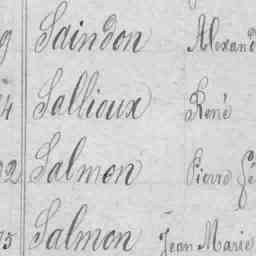 Saindon Alexand
Sallioux René
Salmon Pierre
Salmon Jean Marie